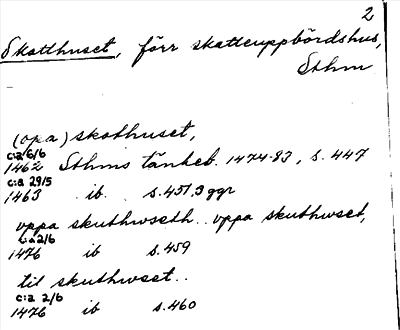 2
Skotthuset, förr skatteuppbördshus,
Sthm
(opa) skothuset,
c:a 6/6
1462 Sthms tänkeb. 1474-83, s. 447
c:a 29/5
1463 ib. s. 451, 3 ggr
vppa skuthwseth.. vppa skuthwset,
c:a 2/6
1476 ib s. 459
til skuthwset..
c:a 2/6
1476 ib s. 460